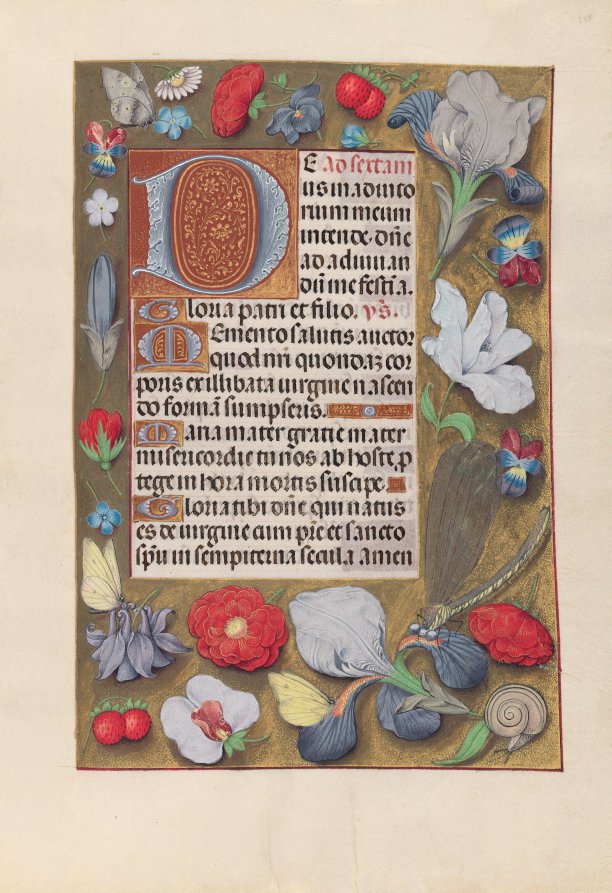 DE Ad sextam
us in adiuto
rium meum
intende. dñe
ad adiuuan
dũ me festĩa.
Gloria patri et filio. vs.
Memento salutis auctor
quod nr̃i quondaʒ cor
poris ex illibata uirgine nascen
do formã sumpseris.
Maria mater gratie mater
misericordie tu nos ab hoste p
tege in hora mortis suscipe.
Gloria tibi dñe qui natus
es de uirgine cum pr̃e et sancto
sp̃u in sempiterna secula amen